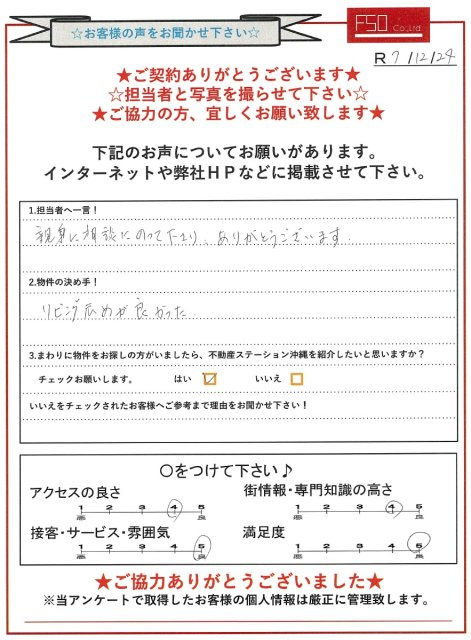 ☆お客様の声をお聞かせ下さい☆
FSO Co.,Ltd.
R 7/12/24
★ご契約ありがとうございます★
☆担当者と写真を撮らせて下さい☆
★ご協力の方、宜しくお願い致します★
下記のお声についてお願いがあります。
インターネットや弊社HPなどに掲載させて下さい。
1.担当者へ一言！
親身に相談にのって下さり、ありがとうございます.
2.物件の決め手！
リビング広めが良かった
3.まわりに物件をお探しの方がいましたら、不動産ステーション沖縄を紹介したいと思いますか？
チェックお願いします。 はい ☑ いいえ □
いいえをチェックされたお客様へご参考まで理由をお聞かせ下さい！
〇をつけて下さい♪
アクセスの良さ
1 2 3 4 5
悪 良
街情報・専門知識の高さ
1 2 3 4 5
悪 良
接客・サービス・雰囲気
1 2 3 4 5
悪 良
満足度
1 2 3 4 5
悪 良
★ご協力ありがとうございました★
※当アンケートで取得したお客様の個人情報は厳正に管理致します。